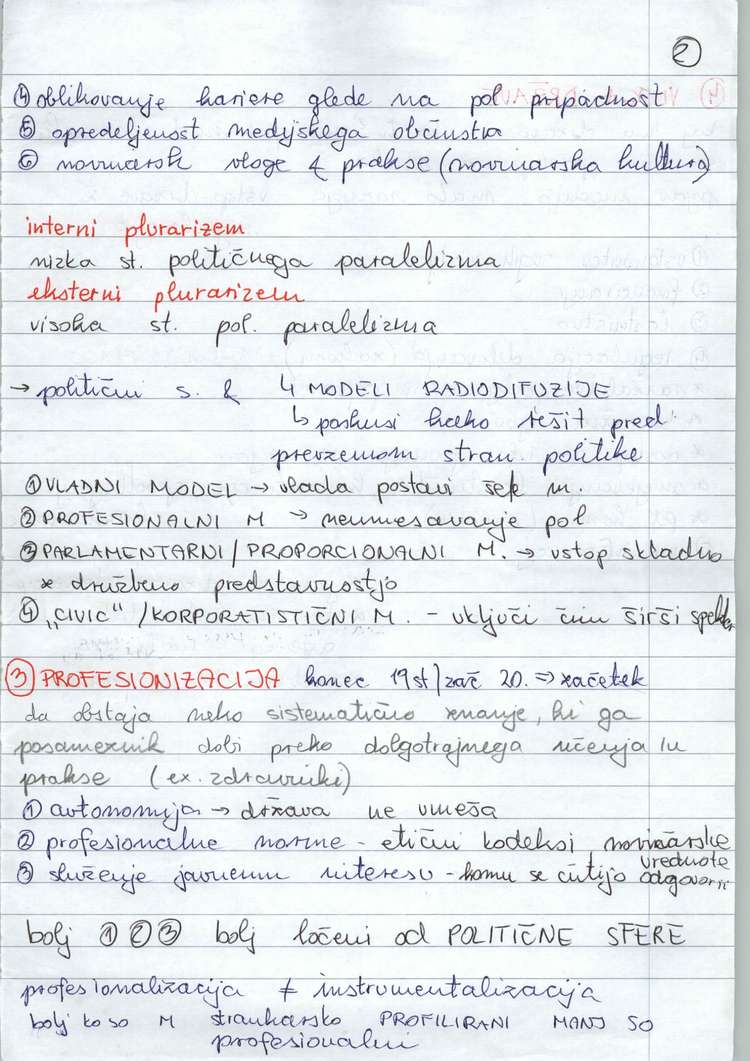 2
④ oblikovanje kariere glede na pol pripadnost
⑤ opredeljenost medijskega občinstva
⑥ novinarsk vloge & prakse (novinarska kultura)
interni plurarizem
nizka st. političnega paralelizma
eksterni plurarizem
visoka st. pol. paralelizma
→ politični s. & 4 MODELI RADIODIFUZIJE
↳ poskusi kako rešit pred
prevzemom stran. politike
① VLADNI MODEL → vlada postavi šefe m.
② PROFESIONALNI M → neumešavanje pol
③ PARLAMENTARNI / PROPORCIONALNI M. → vstop skladno
z družbeno predstavnostjo
④ „CIVIC" / KORPORATISTIČNI M. - vključi čim širši spekter
③ PROFESIONIZACIJA konec 19st/zač 20. ⇒ začetek
da obstaja neko sistematično znanje, ki ga
posameznik dobi preko dolgotrajnega učenja in
prakse (ex. zdravniki)
① avtonomija → država ne vmeša
② profesionalne norme - etični kodeksi novinarske
vrednote
③ služenje javnemu interesu - komu se čutijo odgovorni
bolj ① ② ③ bolj ločeni od POLITIČNE SFERE
profesionalizacija ≠ instrumentalizacija
bolj ko so M strankarsko PROFILIRANI MANJ SO
profesionalni